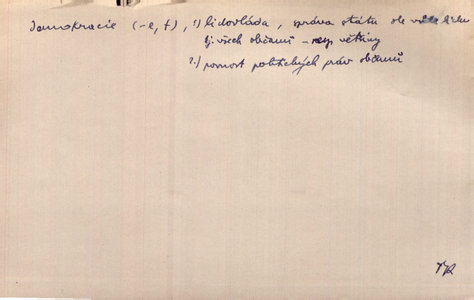 Demokracie (-e, f), 1) lidovláda, správa státu dle vůle lidu
tj všech občanů - resp většiny
2.) rovnost politických práv občanů